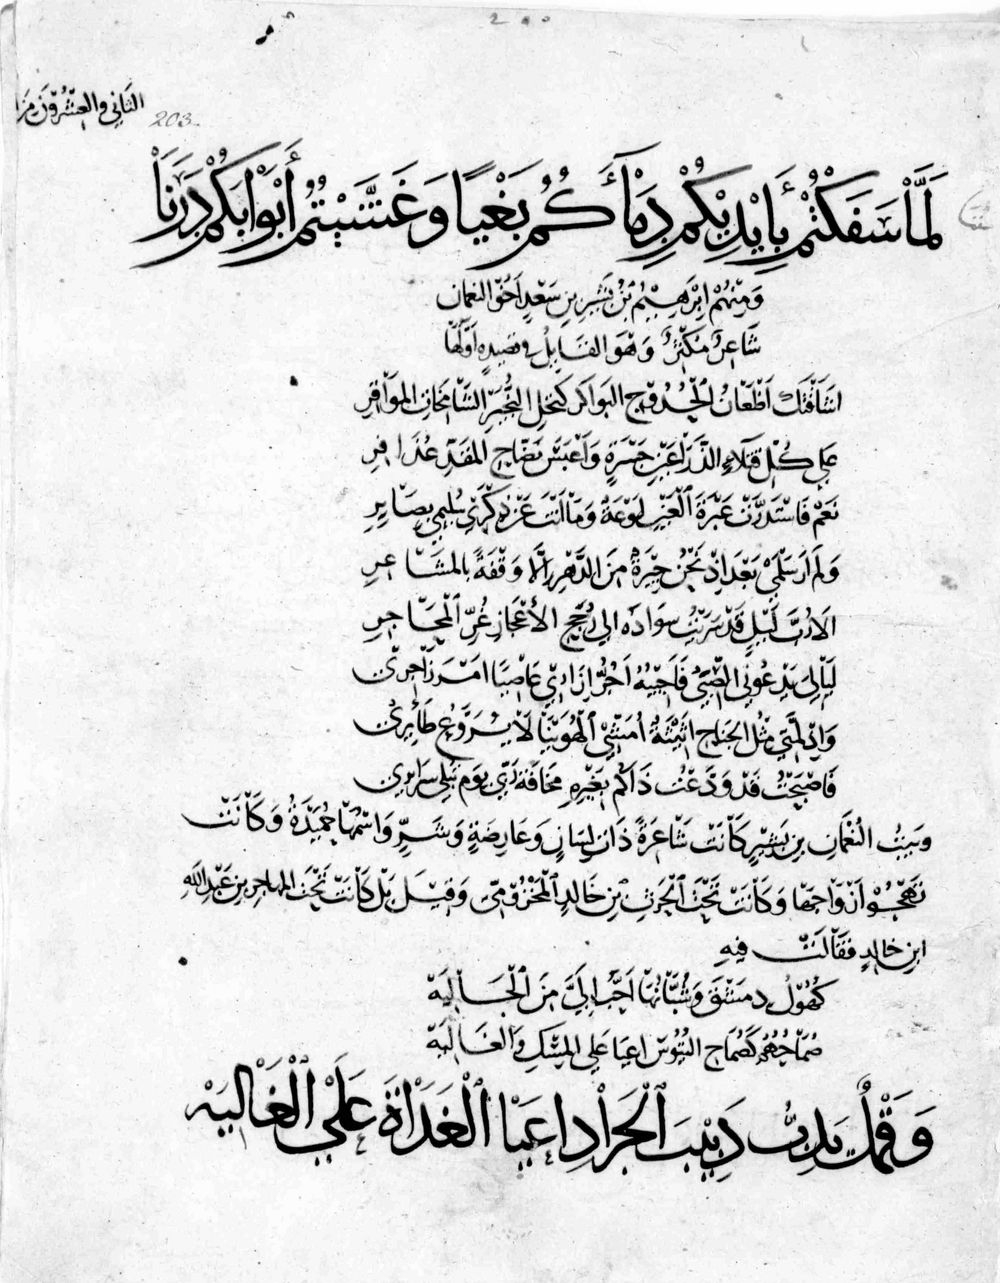 الثاني والعشرون من ا
203
لَمَّا سَفَكْتُمْ بِأَيْدِيكُمْ دِمَاءَكُمُ بَغْيًا وَغَشَّيْتُمُ أَبْوَابَكُمْ دَرَنَا
وَمِنْهُمْ اِبْرَهِيمُ بْنُ بَشِيرِ بنِ سَعْدٍ أَخُو النعمان
شَاعِرٌ مُكْثِرٌ وَهْوَ القَايِلُ في قصيدةٍ أَوَّلُهَا
أَشَاقَتْكَ أَظْعَانُ الْحُدُوجِ البَوَاكِرِ كَنَخْلِ النُّجَيْرِ الشَّامِخَاتِ المَوَاقِرِ
على كُلِّ فَتْلَاءِ الذِّرَاعَيْنِ جَسْرَةٍ وَأَعْيَسَ نَضَّاحِ المَقَذِّ عُذَافِرِ
نَعَمْ فَاسْتَدَرَّتْ عَبْرَةَ الْعَيْنِ لَوْعَةٌ وَمَا أَنْتَ عَنْ ذِكْرَى سُلَيْمَى بِصَابِرِ
وَلَم أَرَ سَلْمَى بَعْدَ إِذْ نَحْنُ جِيرَةٌ مِنَ الدَّهْرِ إِلَّا وَقْفَةً بِالمَشَاعِرِ
أَلَا رُبَّ لَيْلٍ قَدْ سَرَيْتُ سَوَادَهُ الى رُجَّحِ الأَعْجَازِ غُرِّ الْمَحَاجِرِ
لَيَالِيَ يَدْعُونِي الصِّبَى فَأُجِيبُهُ أَجُرُّ إِزَارِي عَاصِيًا أَمْرَ زَاجِرِي
وَإِذْ لِمَّتِي مِثْلُ الجَنَاحِ أَثِيثَةٌ أُمَشِّي الْهُوَيْنَا لَا يُرَوَّعُ طَائِرِي
فَأَصْبَحْتُ قَدْ وَدَّعْتُ ذَاكُم بِغَيْرِهِ مَخَافَةَ رَبِّي يَوْمَ تُبْلَى سَرَايِرِي
وَبِنْتُ النُّعْمَانِ بنِ بَشِيرٍ كَانَتْ شَاعِرَةً ذَاتَ لِسَانٍ وَعَارِضَةٍ وَشَرٍّ وَاسْمُهَا حُمَيْدَةُ وَكَانَتْ
تَهْجُو أَزْوَاجَهَا وَكَانَتْ تَحْتَ الْحَرْثِ بْنِ خَالِدٍ الْمَخْزُومِيّ وَقِيلَ بَلْ كَانَتْ تَحْتَ المهاجر بن عَبْدِ اللهِ
ابنِ خالدٍ فَقَالَتْ فِيهِ
كُهُولُ دِمَشْقَ وَشُبَّانُهَا أَحَبُّ إِلَيَّ مِنَ الْجَالِيَة
صُمَاحُهُمُ كَصُمَاحِ التُّيُوسِ أَعْيَا عَلَى الْمِسْكِ وَالْغَالِيَة
وَقَمْلٌ يَدِبُّ دَبِيبَ الْجَرَادِ أَعْيَا الْغَدَاةَ عَلَى الْغَالِيَهْ